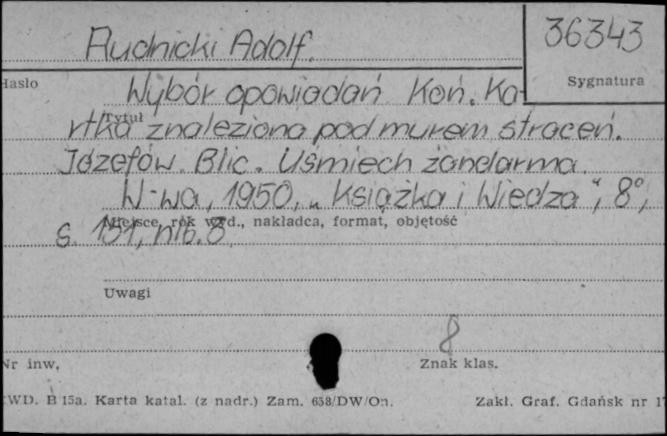 36343
Rudnicki Adolf.
Hasło
Sygnatura
Wybór opowiadań Koń. Ka-
Tytuł
rtka znaleziona pod murem straceń.
Józefów. Blic. Uśmiech żandarma.
W-wa, 1950, „Książka i Wiedza", 8°,
Miejsce, rok wyd., nakładca, format, objętość
s. 151, nlb. 3.
Uwagi
8
Nr inw.
Znak klas.
WD. B 15a. Karta katal. (z nadr.) Zam. 658/DW/On.
Zakł. Graf. Gdańsk nr 1